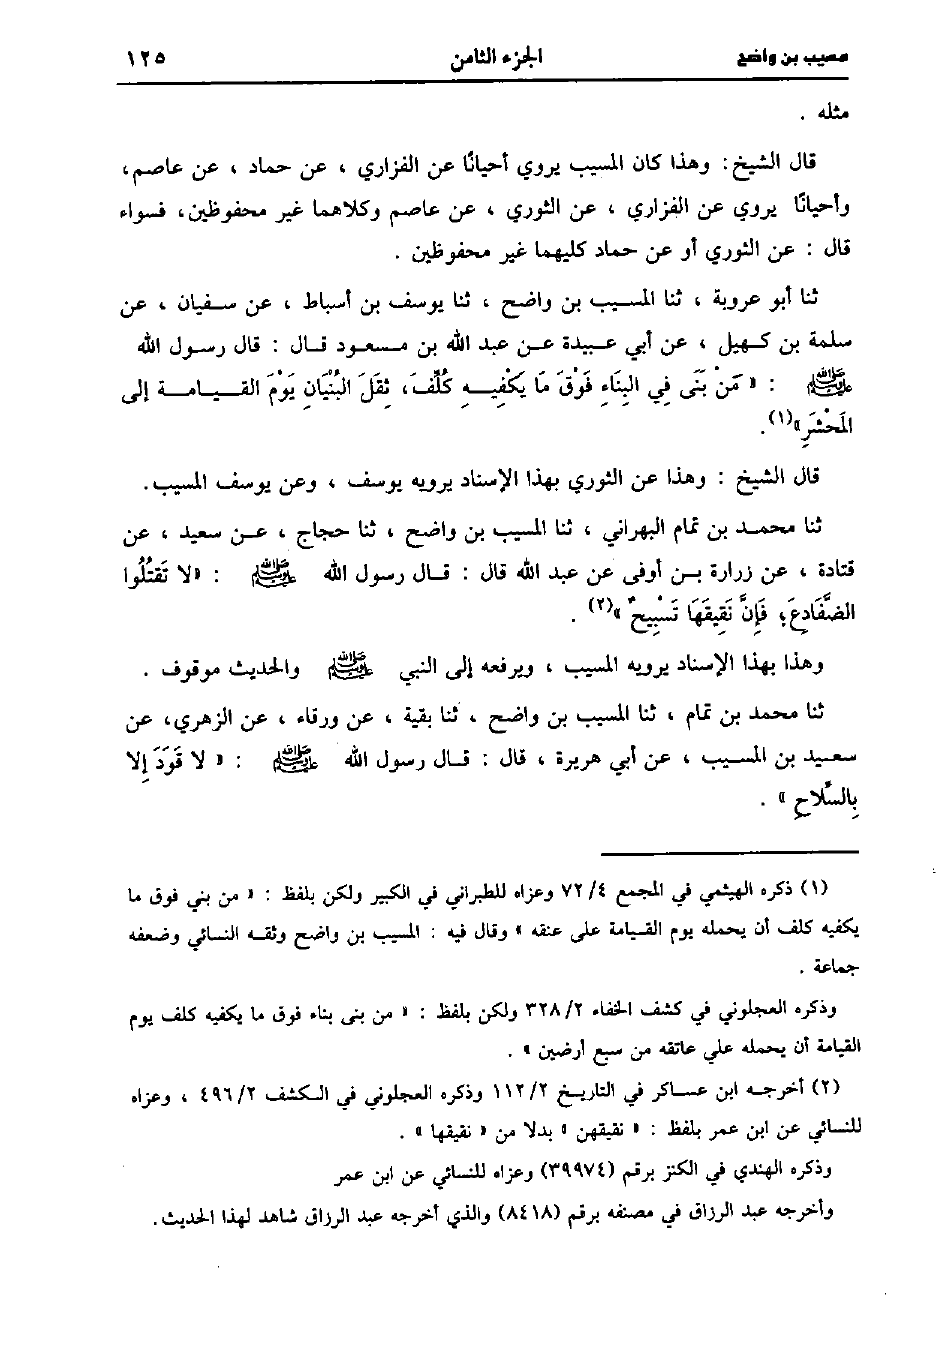 مسيب بن واضح الجزء الثامن ١٢٥
مثله .
قال الشيخ : وهذا كان المسيب يروي أحيانًا عن الفزاري ، عن حماد ، عن عاصم،
وأحيانًا يروي عن الفزاري ، عن الثوري ، عن عاصم وكلاهما غير محفوظين، فسواء
قال : عن الثوري أو عن حماد كليهما غير محفوظين .
ثنا أبو عروبة ، ثنا المسيب بن واضح ، ثنا يوسف بن أسباط ، عن سفيان ، عن
سلمة بن كهيل ، عن أبي عبيدة عن عبد الله بن مسعود قال : قال رسول الله
ﷺ : « مَنْ بَنَى فِي البِنَاءِ فَوْقَ مَا يَكْفِيهِ كُلِّفَ، ثِقَلَ البُنْيَانِ يَوْمَ القيامة إلى
المَحْشَرِ »(١).
قال الشيخ : وهذا عن الثوري بهذا الإسناد يرويه يوسف ، وعن يوسف المسيب.
ثنا محمد بن تمام البهراني ، ثنا المسيب بن واضح ، ثنا حجاج ، عن سعيد ، عن
قتادة ، عن زرارة بن أوفى عن عبد الله قال : قال رسول الله ﷺ : «لا تَقْتُلُوا
الضَّفَادِعَ؛ فَإِنَّ نَقِيقَهَا تَسْبِيحٌ »(٢) .
وهذا بهذا الإسناد يرويه المسيب ، ويرفعه إلى النبي ﷺ والحديث موقوف .
ثنا محمد بن تمام ، ثنا المسيب بن واضح ، ثنا بقية ، عن ورقاء ، عن الزهري، عن
سعيد بن المسيب ، عن أبي هريرة ، قال : قال رسول الله ﷺ : « لا قَوَدَ إِلا
بِالسِّلاحِ » .
(١) ذكره الهيثمي في المجمع ٧٢/٤ وعزاه للطبراني في الكبير ولكن بلفظ : « من بني فوق ما
يكفيه كلف أن يحمله يوم القيامة على عنقه » وقال فيه : المسيب بن واضح وثقه النسائي وضعفه
جماعة .
وذكره العجلوني في كشف الخفاء ٣٢٨/٢ ولكن بلفظ : « من بنى بناء فوق ما يكفيه كلف يوم
القيامة أن يحمله علي عاتقه من سبع أرضين » .
(٢) أخرجه ابن عساكر في التاريخ ١١٢/٢ وذكره العجلوني في الكشف ٤٩٦/٢ ، وعزاه
للنسائي عن ابن عمر بلفظ : « نقيقهن » بدلا من « نقيقها » .
وذكره الهندي في الكنز برقم (٣٩٩٧٤) وعزاه للنسائي عن ابن عمر
وأخرجه عبد الرزاق في مصنفه برقم (٨٤١٨) والذي أخرجه عبد الرزاق شاهد لهذا الحديث.